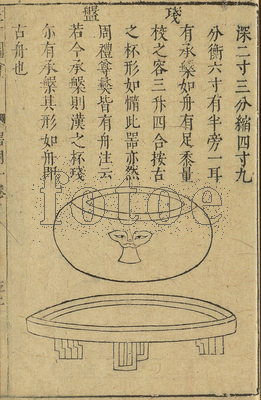 盞盤
深二寸三分縮四寸九
分衡六寸有半旁一耳
有承槃如舟有足黍量
校之容三升四合按古
之杯形如髆此器亦然
周禮尊彝皆有舟注云
若今承槃則漢之杯琖
尓有承槃其形如舟
古舟也
totoe